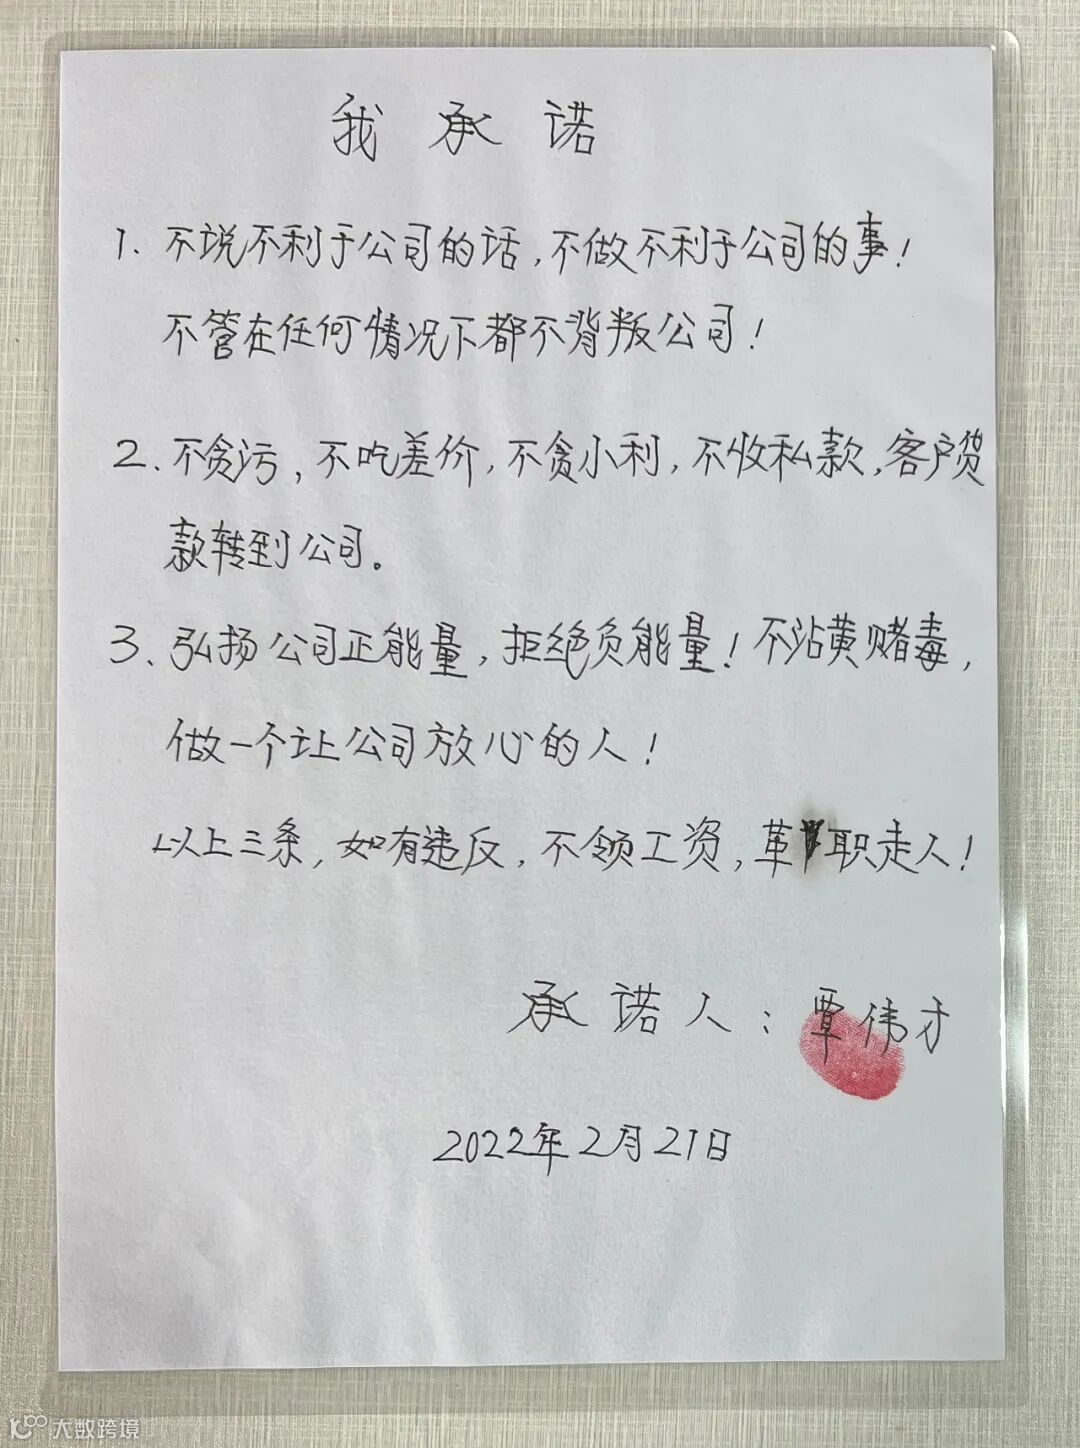 我承诺
1. 不说不利于公司的话,不做不利于公司的事!
不管在任何情况下都不背叛公司!
2、不贪污,不吃差价,不贪小利,不收私款,客户货
款转到公司。
3、弘扬公司正能量,拒绝负能量!不沾黄赌毒,
做一个让公司放心的人!
以上三条,如有违反,不领工资,革职走人!
承诺人:覃伟才
2022年2月21日
大数跨境